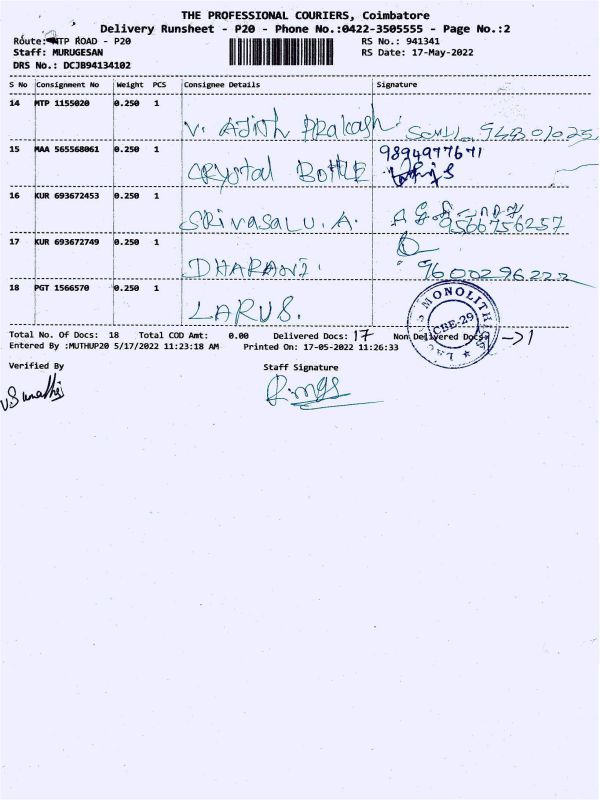 THE PROFESSIONAL COURIERS, Coimbatore
Delivery Runsheet - P20 - Phone No.:0422-3505555 - Page No.:2
Route: MTP ROAD - P20
RS No.: 941341
Staff: MURUGESAN
RS Date: 17-May-2022
DRS No.: DCJB94134102
S No Consignment No Weight PCS Consignee Details Signature
14 MTP 1155020 0.250 1 V. AJITH PRAKASH.
15 MAA 565568061 0.250 1 CRYSTAL BOTTLE 9894977671
16 KUR 693672453 0.250 1 SRIVASALU. A. 9566756257
17 KUR 693672749 0.250 1 DHARANI. 9600296222
18 PGT 1566570 0.250 1 LARUS.
MONOLITHA
CBE-29
Total No. Of Docs: 18 Total COD Amt: 0.00 Delivered Docs: 17 Non Delivered Docs: ->1
Entered By :MUTHUP20 5/17/2022 11:23:18 AM Printed On: 17-05-2022 11:26:33
Verified By Staff Signature